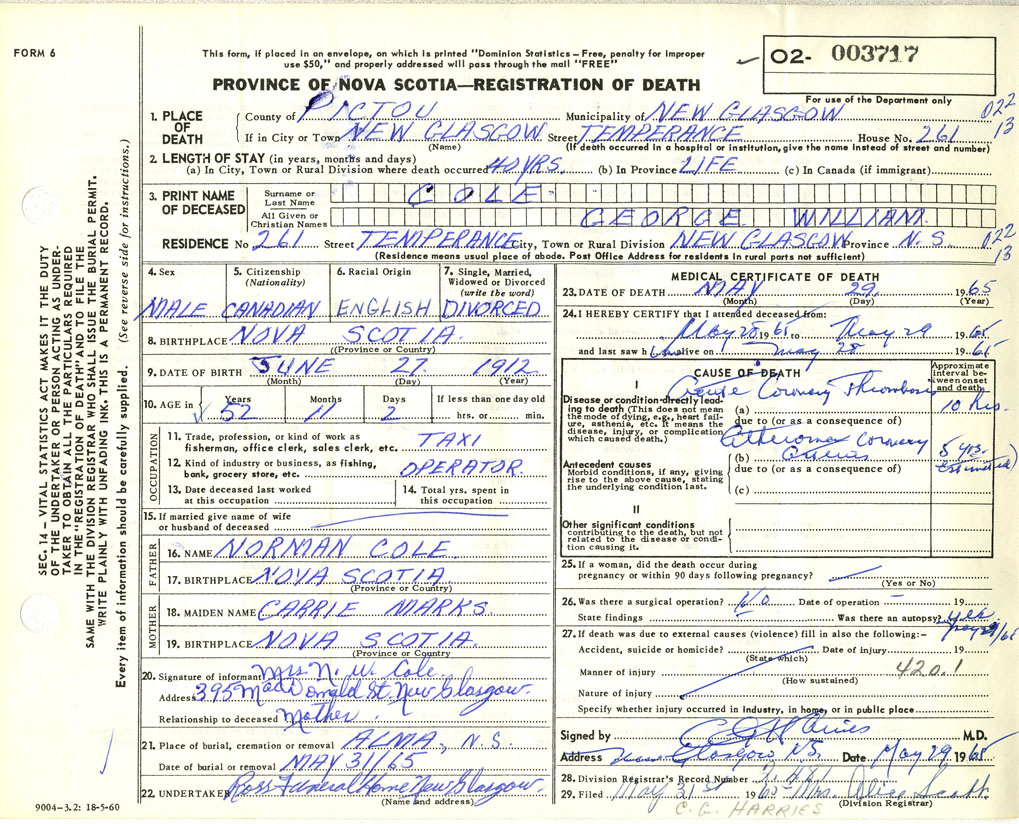 FORM 6
This form, if placed in an envelope, on which is printed "Dominion Statistics – Free, penalty for improper
use $50," and properly addressed will pass through the mail "FREE"
O2- 003717
PROVINCE OF NOVA SCOTIA—REGISTRATION OF DEATH
For use of the Department only
1. PLACE OF DEATH
County of PICTOU Municipality of NEW GLASGOW 022
If in City or Town NEW GLASGOW Street TEMPERANCE House No. 261 13
(Name) (If death occurred in a hospital or institution, give the name instead of street and number)
2. LENGTH OF STAY (in years, months and days)
(a) In City, Town or Rural Division where death occurred 40 YRS. (b) In Province LIFE (c) In Canada (if immigrant)
3. PRINT NAME OF DECEASED
Surname or Last Name COLE
All Given or Christian Names GEORGE WILLIAM
RESIDENCE No 261 Street TEMPERANCE City, Town or Rural Division NEW GLASGOW Province N.S. 022
(Residence means usual place of abode. Post Office Address for residents in rural parts not sufficient) 13
4. Sex
MALE
5. Citizenship
(Nationality)
CANADIAN
6. Racial Origin
ENGLISH
7. Single, Married,
Widowed or Divorced
(write the word)
DIVORCED
8. BIRTHPLACE NOVA SCOTIA
(Province or Country)
9. DATE OF BIRTH JUNE 27 1912
(Month) (Day) (Year)
10. AGE in Years Months Days If less than one day old
52 11 2 hrs. or min.
OCCUPATION
11. Trade, profession, or kind of work as
fisherman, office clerk, sales clerk, etc. TAXI
12. Kind of industry or business, as fishing,
bank, grocery store, etc. OPERATOR
13. Date deceased last worked
at this occupation
14. Total yrs. spent in
this occupation
15. If married give name of wife
or husband of deceased
FATHER
16. NAME NORMAN COLE
17. BIRTHPLACE NOVA SCOTIA
(Province or Country)
MOTHER
18. MAIDEN NAME CARRIE MARKS
19. BIRTHPLACE NOVA SCOTIA
(Province or Country)
20. Signature of informant Mrs. N. W. Cole
Address 395 MacDonald St. New Glasgow
Relationship to deceased Mother
21. Place of burial, cremation or removal ALMA, N.S.
Date of burial or removal MAY 31/65
22. UNDERTAKER Ross Funeral Home New Glasgow
(Name and address)
MEDICAL CERTIFICATE OF DEATH
23. DATE OF DEATH MAY 29 1965
(Month) (Day) (Year)
24. I HEREBY CERTIFY that I attended deceased from:
May 28 1965 to May 29 1965
and last saw him alive on May 28 1965
CAUSE OF DEATH
Approximate interval between onset and death
I
Disease or condition directly leading to death (This does not mean the mode of dying, e.g., heart failure, asthenia, etc. It means the disease, injury, or complication which caused death.)
(a) Coronary Thrombosis 10 Hrs.
due to (or as a consequence of)
Antecedent causes
Morbid conditions, if any, giving rise to the above cause, stating the underlying condition last.
(b) Coronary 5 yrs.
due to (or as a consequence of) Estimated)
(c)
II
Other significant conditions
contributing to the death, but not related to the disease or condition causing it.
25. If a woman, did the death occur during
pregnancy or within 90 days following pregnancy?
(Yes or No)
26. Was there a surgical operation? No Date of operation – 19
State findings – Was there an autopsy? yes
May 29/65
27. If death was due to external causes (violence) fill in also the following:–
Accident, suicide or homicide? Date of injury 19
(State which)
Manner of injury 420.1
(How sustained)
Nature of injury
Specify whether injury occurred in industry, in home, or in public place
Signed by C G Harries M.D.
Address New Glasgow N.S. Date May 29 1965
28. Division Registrar's Record Number
29. Filed May 31st 1965 Mrs. Alice Scott
(Division Registrar)
C. G. HARRIES
9004-3.2: 18-5-60
SEC. 14 – VITAL STATISTICS ACT MAKES IT THE DUTY
OF THE UNDERTAKER OR PERSON ACTING AS UNDER-
TAKER TO OBTAIN ALL THE PARTICULARS REQUIRED
IN THE "REGISTRATION OF DEATH" AND TO FILE THE
SAME WITH THE DIVISION REGISTRAR WHO SHALL ISSUE THE BURIAL PERMIT.
WRITE PLAINLY WITH UNFADING INK: THIS IS A PERMANENT RECORD.
Every item of information should be carefully supplied. (See reverse side for instructions.)